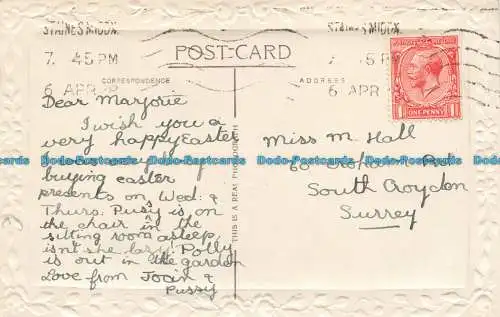 STAINES MIDDX.
7. 45 PM
6 APR 28
STAINES MIDDX.
45 PM
6 APR
POST-CARD
CORRESPONDENCE
ADDRESS
ONE PENNY
Dear Marjorie
I wish you a
very happy Easter
buying easter
presents on Wed: &
Thurs: Pussy is on
the chair in the
sitting room asleep,
isnt she lazy! Polly
is out in the garden
Love from Joan &
Pussy
THIS IS A REAL PHOTOGRAPH
Miss M Hall
Rd
South Croydon
Surrey
Dodo-Postcards Dodo-Postcards Dodo-Postcards Dodo-Postcards